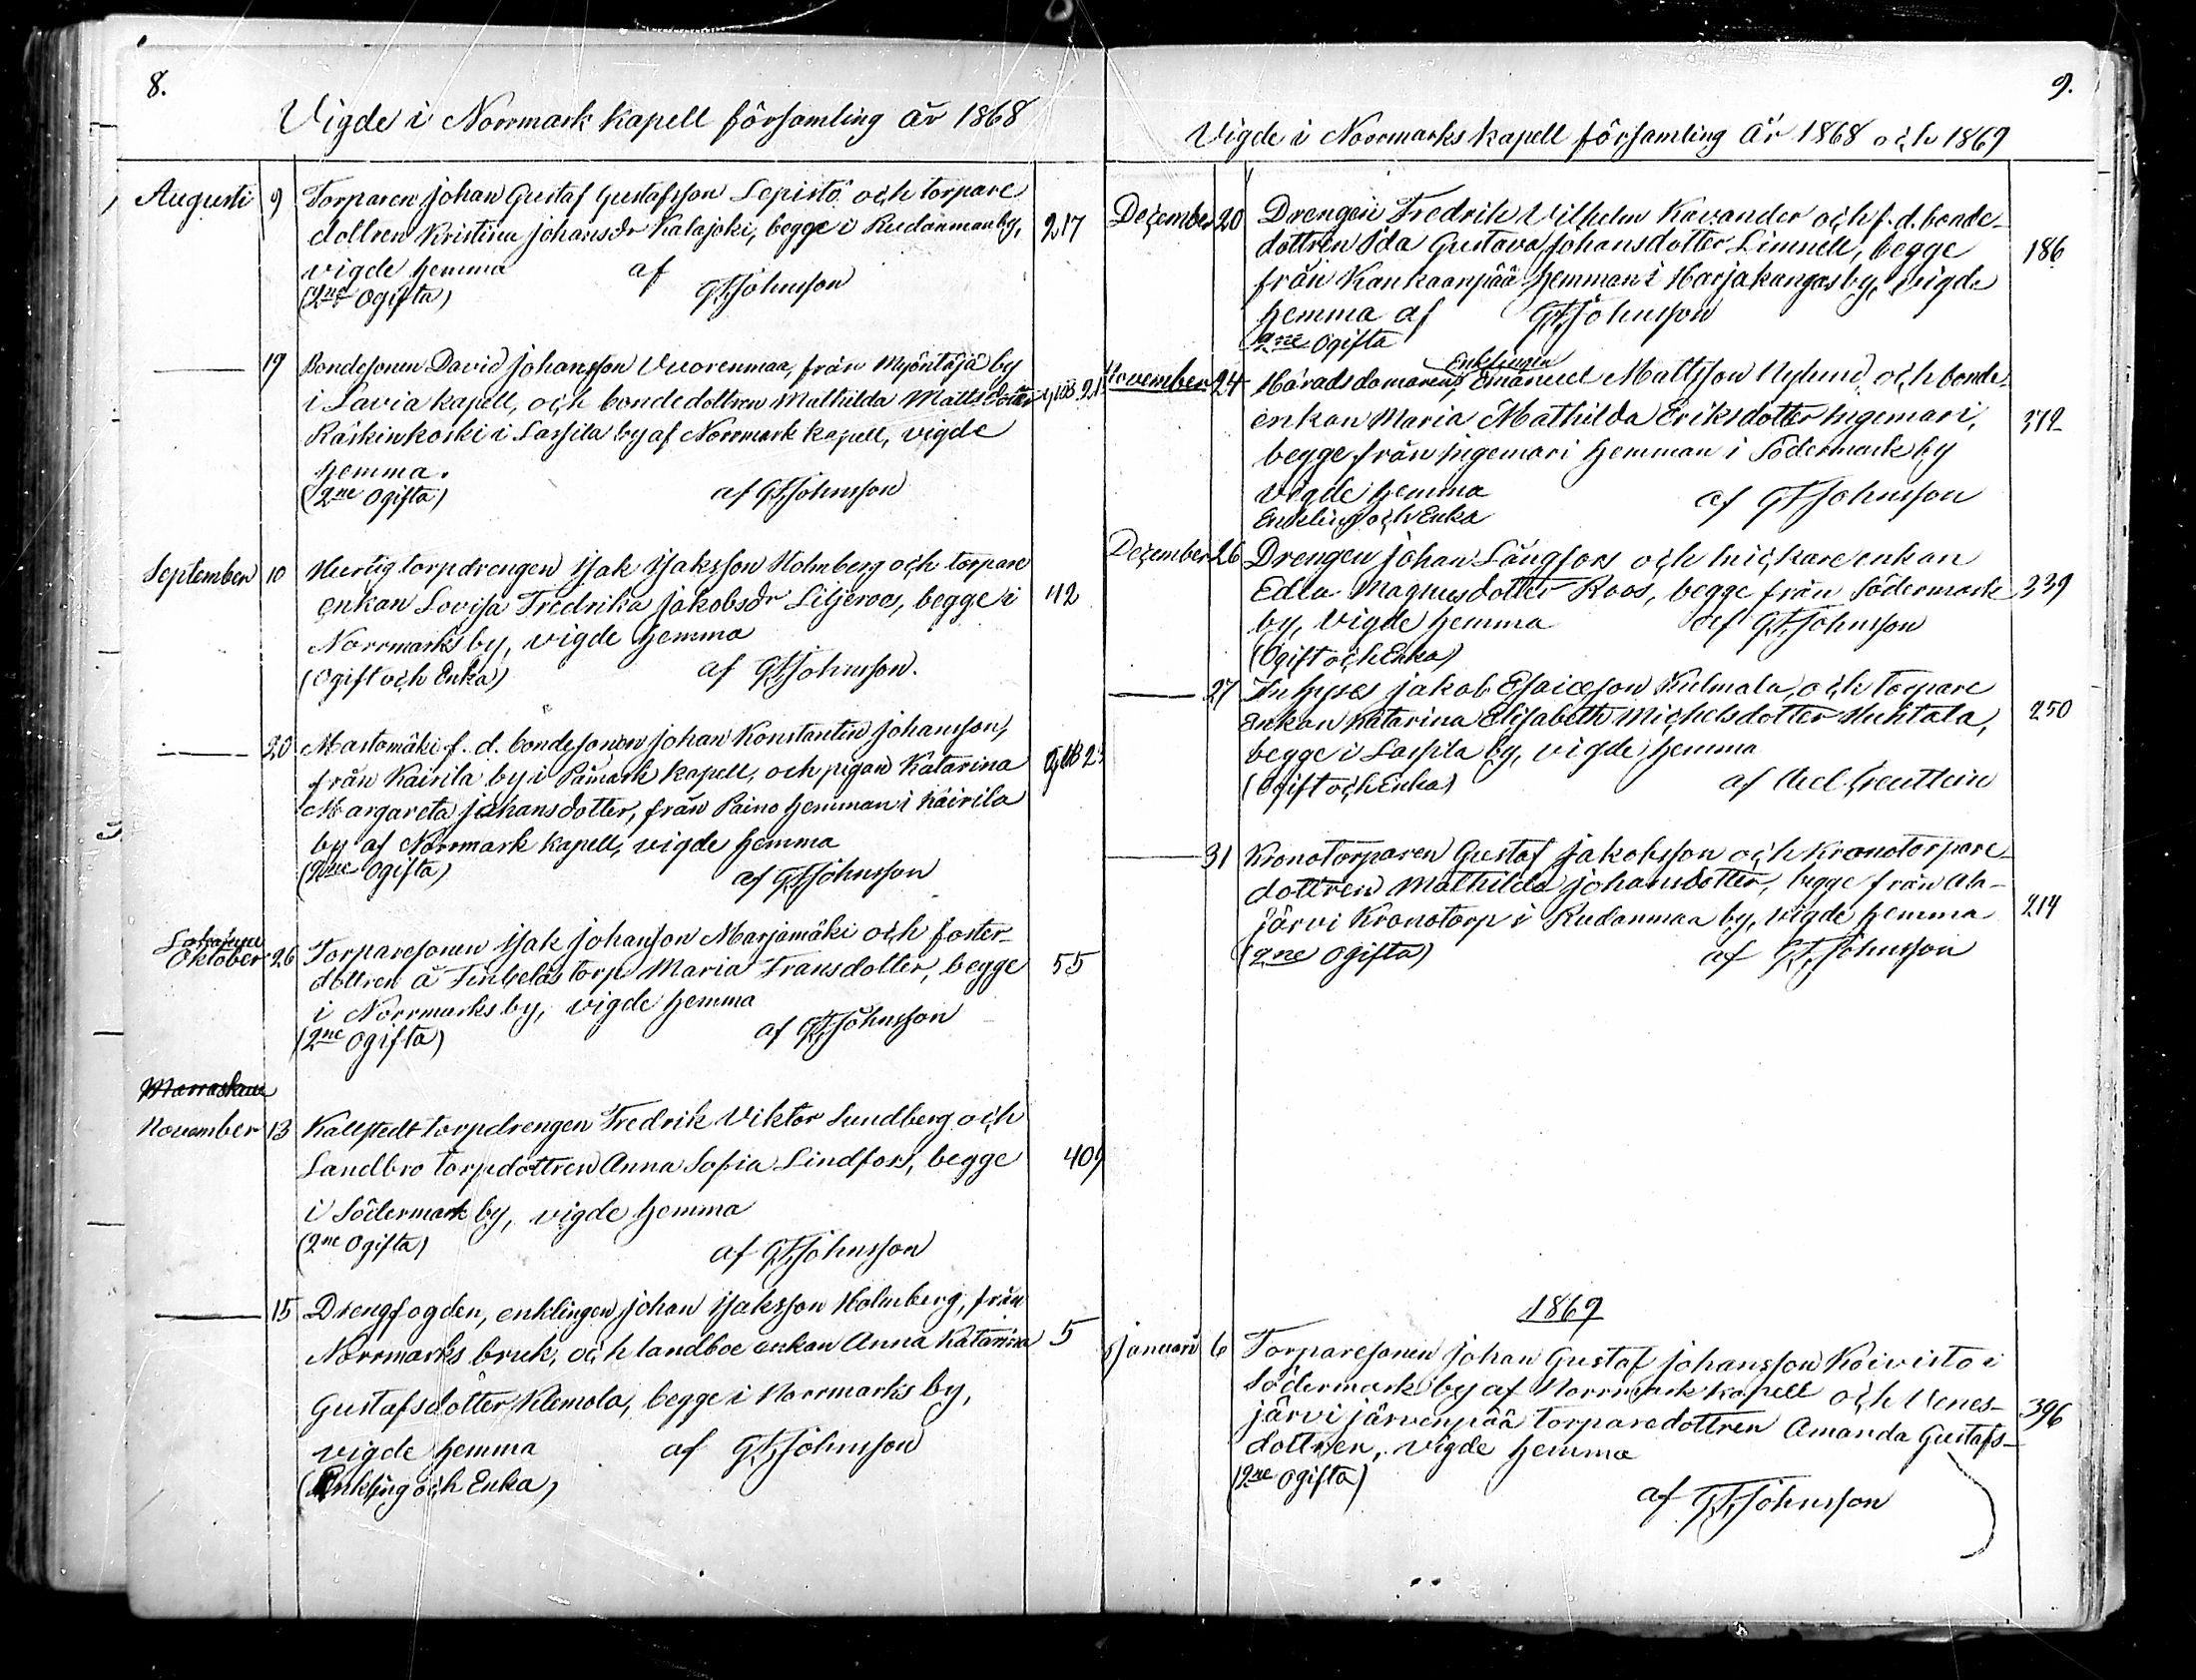 8.
Vigde i Norrmark kapell församling år 1868
Augusti 9 Torparen Johan Gustaf Gustafsson Lepistö och torpare
dottren Kristina Johansdr Kalajoki, begge i Rudanmaa by, 217
vigde hemma af
(2ne Ogifta) G.F. Johnsson
19 Bondesonen David Johansson Vuorenmaa, från Myöntäjä by
i Lavia kapell, och bondedottren Mathilda Mattsdotter
Räikinkoski i Lassila by af Norrmark kapell, vigde
hemma.
(2ne Ogifta) af G.F. Johnsson
September 10 Hurtig torpdrengen Isak Isaksson Holmberg och torpare
enkan Lovisa Fredrika Jakobsdr Liljeroos, begge i 42
Norrmarks by, vigde hemma
(Ogift och Enka) af G.F. Johnsson.
20 Mastomäki f. d. bondesonen Johan Konstantin Johansson,
från Kairila by i Påmark kapell, och pigan Katarina
Margareta Johansdotter, från Paino hemman i Kairila
by af Norrmark kapell, vigde hemma
(2ne Ogifta) af G.F. Johnsson
Oktober 26 Torparesonen Isak Johansson Marjamäki och foster-
dottren å torp Maria Fransdotter, begge 55
i Norrmarks by, vigde hemma
(2ne Ogifta) af G.F. Johnsson
Marraskuu
November 13 Kallstedt torpdrengen Fredrik Viktor Sundberg och
Landbro torpdottren Anna Sofia Lindfors, begge 409
i Södermark by, vigde hemma
(2ne Ogifta) af G.F. Johnsson
15 Drengfogden, enklingen Johan Isaksson Holmberg, från
Norrmarks bruk, och landboe enkan Anna Katarina 5
Gustafsdotter Klemola, begge i Norrmarks by,
vigde hemma af G.F. Johnsson
(Enkling och Enka)
9.
Vigde i Norrmarks kapell församling år 1868 och 1869
December 20 Drengen Fredrik Vilhelm Kavander och f. d. bonde-
dottren Ida Gustava Johansdotter Limnell, begge 186
från Kankaanpää hemman i Harjakangas by, vigde
hemma af G.F. Johnsson
2ne Ogifta
Enklingen
November 24 Häradsdomaren, Emanuel Mattsson Nylund och bonde-
enkan Maria Mathilda Eriksdotter Ingemari, 312
begge från Ingemari hemman i Södermark by
vigde hemma af G.F. Johnsson
Enkling och Enka
December 26 Drengen Johan Långfors och snickare enkan
Edla Magnusdotter Roos, begge från Södermark 339
by, vigde hemma af G.F. Johnsson
(Ogift och Enka)
27 Inhyses Jakob Esaiasson Kulmala, och torpare
Enkan Katarina Elisabeth Michelsdotter Huhtala, 250
begge i Lassila by, vigde hemma
(Ogift och Enka) af
31 Kronotorparen Gustaf Jakobsson och kronotorpare-
dottren Mathilda Johansdotter, begge från Ah-
järvi Kronotorp i Rudanmaa by, vigde hemma 214
(2ne Ogifta) af G.F. Johnsson
1869
Januari 6 Torparesonen Johan Gustaf Johansson Koivisto i
Södermark by af Norrmark kapell och Venes-
järvi järvenpää torparedottren Amanda Gustafs- 396
dottren, vigde hemma
(2ne Ogifta)
af G.F. Johnsson